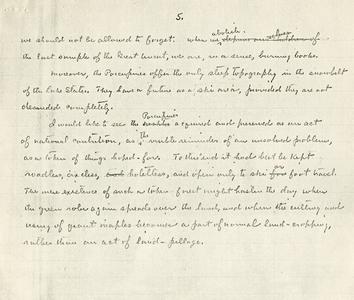 5.
abolish
we should not be allowed to forget. When we
the last sample of the Great Uncut, we are, in a sense, burning books.
Moreover, the Porcupines offer the only steep topography in the snowbelt
of the Lake States. They have a future as a ski area, provided they are not
denuded completely.
Porcupines
I would like to see the acquired and preserved as an act
of national contrition, as the visible reminder of an unsolved problem,
as a token of things hoped-for. To this end it had best be kept
roadless, hotelless, and open only to ski or foot travel.
The mere existence of such a token forest might hasten the day when
the green robe again spreads over the land, and when the cutting and
using of giant maples becomes a part of normal land-cropping,
rather than an act of land-pillage.